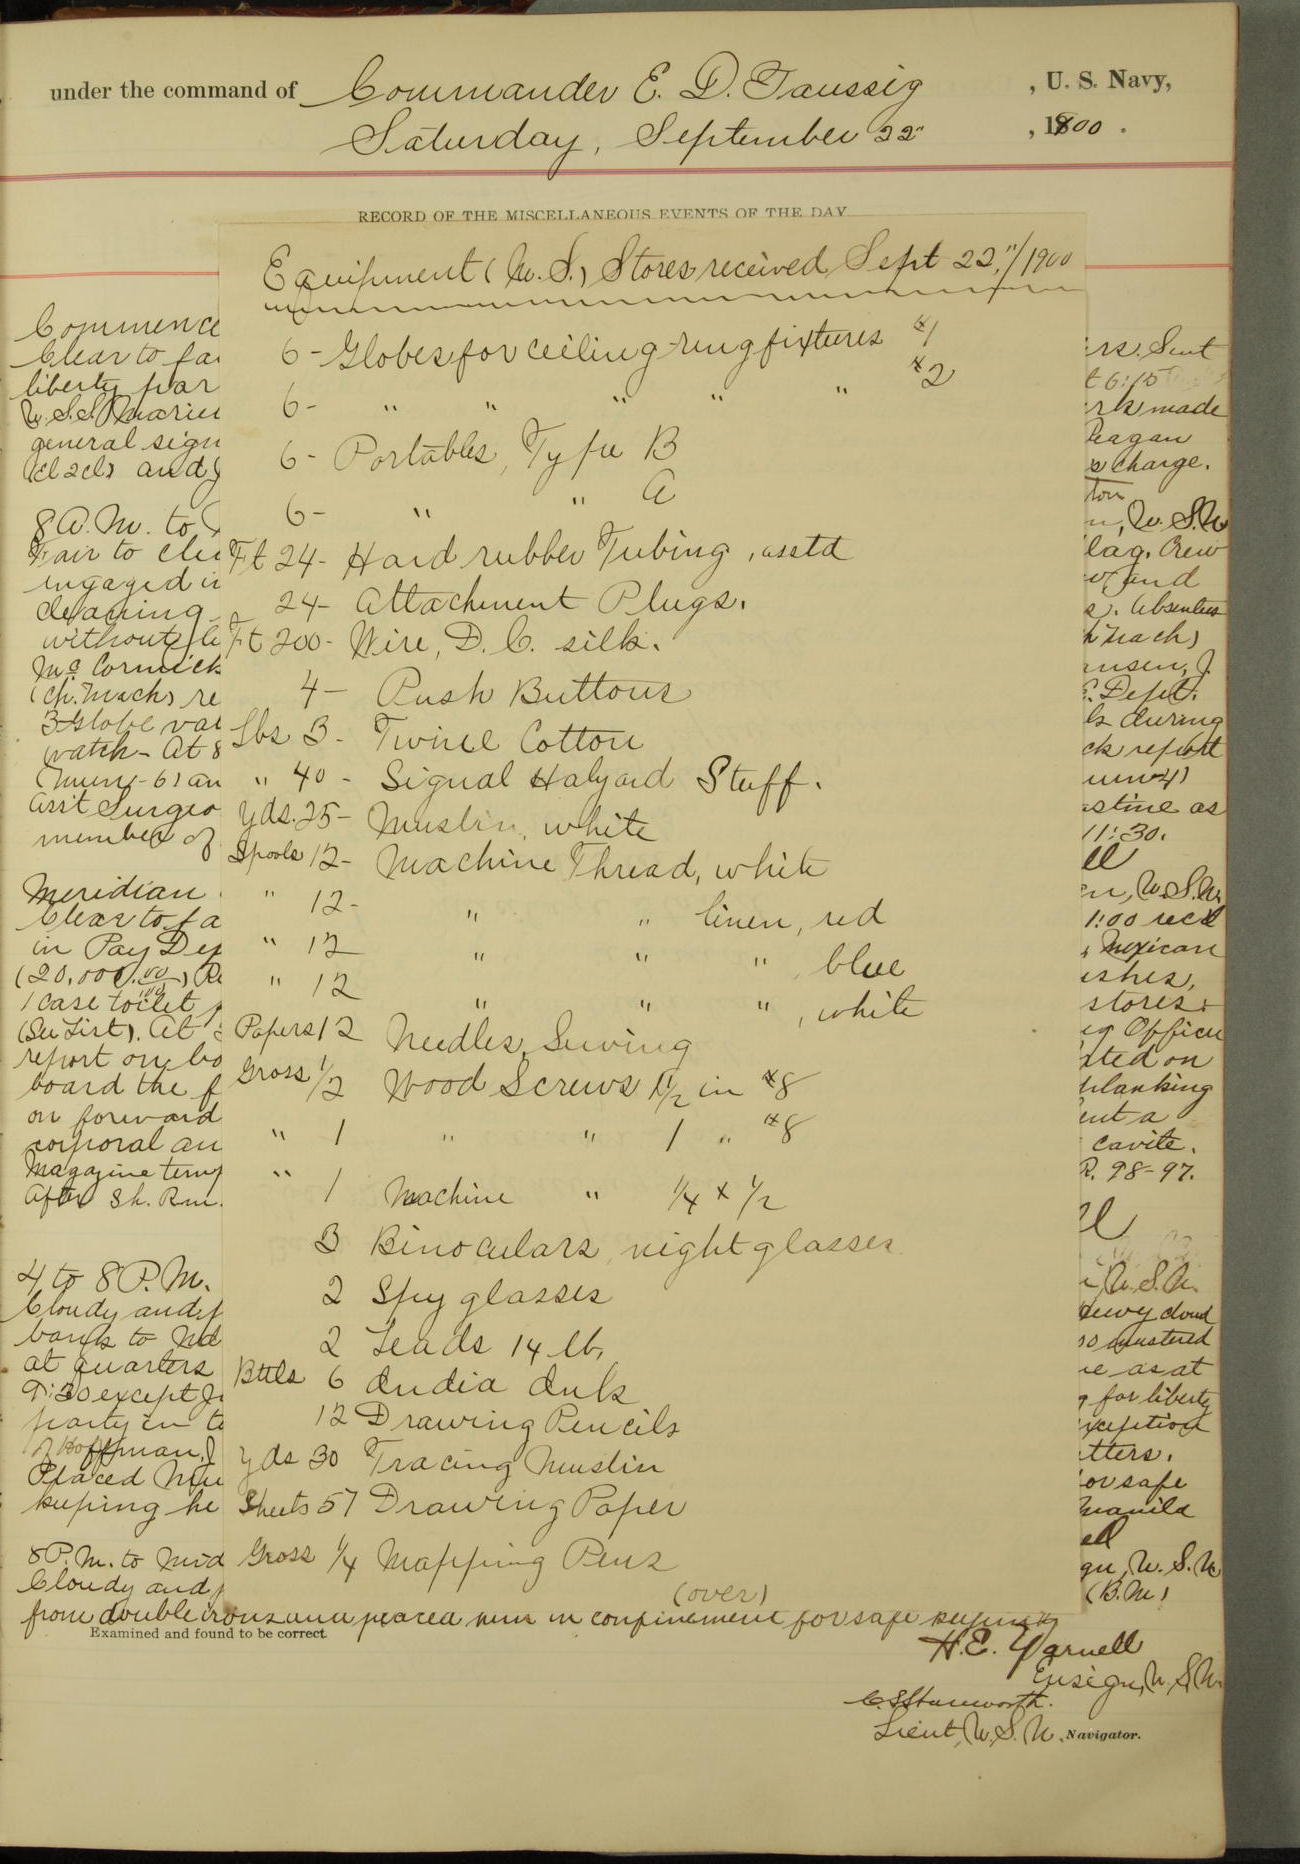 under the command of Commander E. D. Taussig, U. S. Navy,
Saturday, September 22", 1900.
RECORD OF THE MISCELLANEOUS EVENTS OF THE DAY
Equipment (N.S.) Stores received Sept 22,"/1900
6- Globes for ceiling ring fixtures #1
6- " " " " " #2
6- Portables, Type B
6- " " A
Ft 24- Hard rubber Tubing, asstd
24- Attachment Plugs.
Ft 200- Wire, D. C. silk.
4- Push Buttons
Lbs 3- Twine Cotton
" 40- Signal Halyard Stuff.
Yds. 25- Muslin, white
Spools 12- Machine Thread, white
" 12- " " linen, red
" 12 " " " blue
" 12 " " ", white
Papers 12 Needles, Sewing
Gross 1/2 Wood Screws 1 1/2 in #8
" 1 " " 1 " #8
" 1 Machine " 1/4 x 1/2
3 Binoculars, night glasses
2 Spy glasses
2 Leads 14 lb.
Bttls 6 India Ink
12 Drawing Pencils
Yds 30 Tracing Muslin
Sheets 57 Drawing Paper
Gross 1/4 Mapping Pens
(over)
Commence
Clear to fa
liberty par
U.S.S. Mariet
general sign
(cl 2cl) and
8 A.M. to
Fair to cle
engaged in
cleaning
without le
McCormick
(ch. mach) re
3 Globe val
watch- At 8
an
Ass't Surgeo
member of
Meridian
Clear to fa
in Pay Dep
(20,000.00/100) Re
1 case toilet
(See List). At
report on bo
board the f
on forward
corporal an
Magazine temp
After Sh. Rm.
4 to 8 P.M.
Cloudy and
bank to
at quarters
9:30 except
party in
Hoffman, J
Placed
keeping he
8 P.M. to Mid
Cloudy and
ers. Sent
t 6:15
rk made
Reagan
s charge.
ton
n, U.S.N
lag. Crew
and
s. Absentees
h mach)
ansen, J.
E. Dept.
ls during
ck report
astine as
11:30.
ell
en, U.S.N.
1:00 rec'd
, Mexican
ishes,
stores
ig Officer
ated on
planking
ent a
Cavite.
R. 98-97.
ell
n, U.S.N.
eavy cloud
so mustered
ne as at
g for liberty
xception
tters.
or safe
Manila
ell
gn, U.S.N
(B.M)
from double irons and placed him in confinement for safe keeping
Examined and found to be correct.
H. E. Yarnell
Ensign, U.S.N.
Lieut, U.S.N., Navigator.